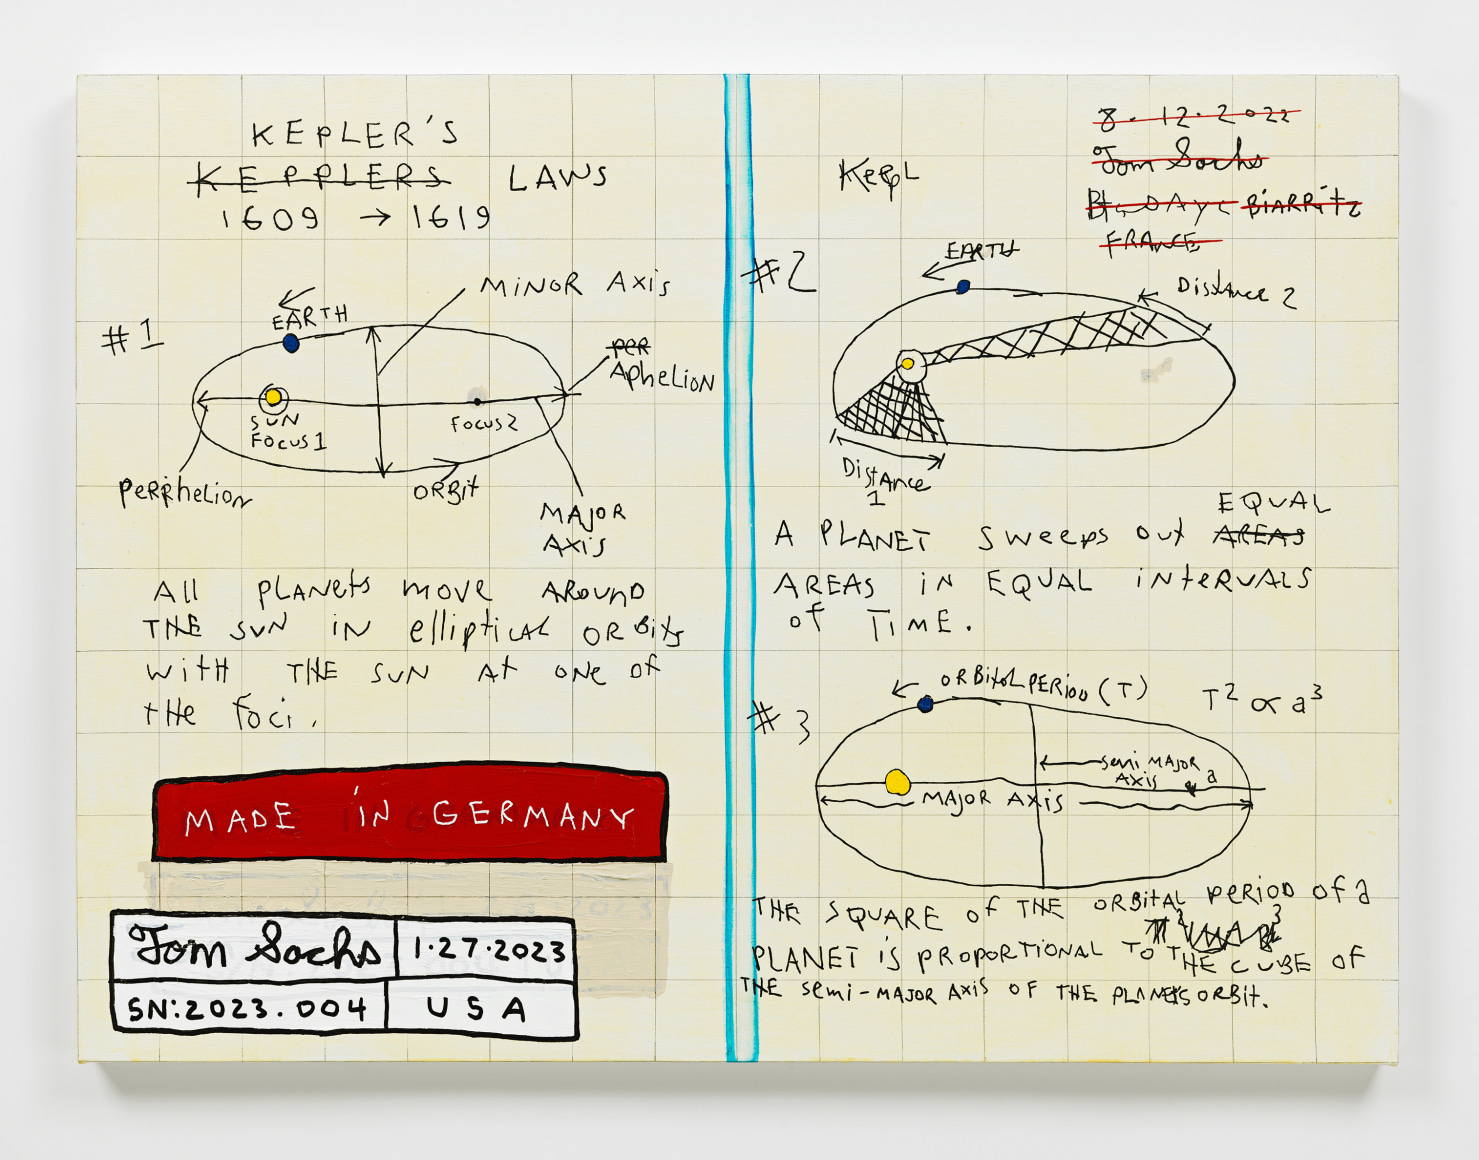 KEPLER'S
KEPPLERS LAWS
1609 → 1619
#1
EARTH
MINOR AXIS
PER
APHELION
SUN
FOCUS 1
FOCUS 2
PERRIHELION
ORBIT
MAJOR
AXIS
ALL PLANETS MOVE AROUND
THE SUN IN ELLIPTICAL ORBITS
WITH THE SUN AT ONE OF
THE FOCI.
MADE IN GERMANY
Tom Sachs 1·27·2023
SN:2023.004 USA
8·12·2022
Tom Sachs
BIARRITZ
FRANCE
#2
EARTH
Distance 2
Distance
1
EQUAL
A PLANET SWEEPS OUT AREAS
AREAS IN EQUAL INTERVALS
OF TIME.
#3
ORBITAL PERIOD (T) T² ∝ a³
SEMI MAJOR
AXIS a
MAJOR AXIS
THE SQUARE OF THE ORBITAL PERIOD OF A
PLANET IS PROPORTIONAL TO THE CUBE OF
THE SEMI-MAJOR AXIS OF THE PLANETS ORBIT.